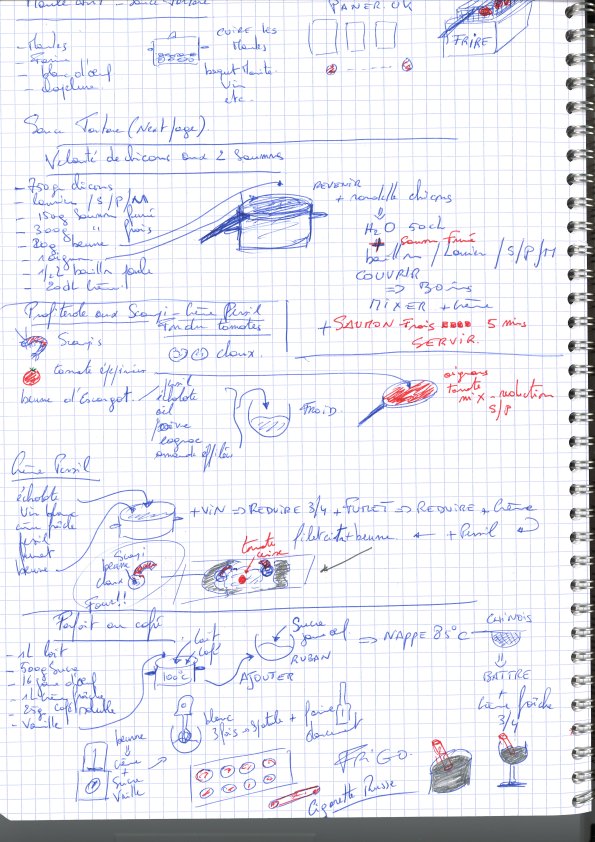 Sauce Tartare
PANER OK
- Moules
- Farine
- blanc d'œuf
- chapelure
CUIRE les
Moules
Vin
etc.
FRIRE
Sauce Tartare (Next page).
Velouté de chicons aux 2 Saumons
- 750gr chicons
- Laurier / S/P/M
- 150g Saumon fumé
- 300g " frais
- 20g beurre
- 1 oignon
- 1/2 bouillon poule
- 20cl Crème
REVENIR
+ rondelle chicons
⇓
H2O 50cl
+ Saumon Fumé
bouillon / Laurier / S/P/M
COUVRIR
⇒ 30 mins
MIXER + Crème
+ SAUMON Frais 5 mins
SERVIR.
Profiterole aux Scampi - Crème Persil
Fondu tomates
Scampis
choux.
tomate
beurre d'Escargot
persil
échalote
ail
poivre
cognac
amande effilée
FROID.
oignons
tomate
mix - reduction
S/P
Crème Persil
échalote
Vin blanc
crème fraîche
persil
fumet
beurre
+ VIN ⇒ REDUIRE 3/4 + FUMET ⇒ REDUIRE + Crème
filet citr + beurne ← + Persil
Scampi
beurre
choux
Four!!
tomate
cerise
Parfait au café
- 1L lait
- 500g Sucre
- 16 jaune d'œuf
- 1L crème fraîche
- 25g café soluble
- Vanille
Lait
café
100°C
Sucre
jaune œuf
RUBAN
AJOUTER
⇒ NAPPE 85°C
CHINOIS
⇓
BATTRE
+
Crème fraîche
3/4
beurre
+
Sucre
Vanille
blanc
3 fois spatule + farine
doucement
FRIGO
Cigarette Russe